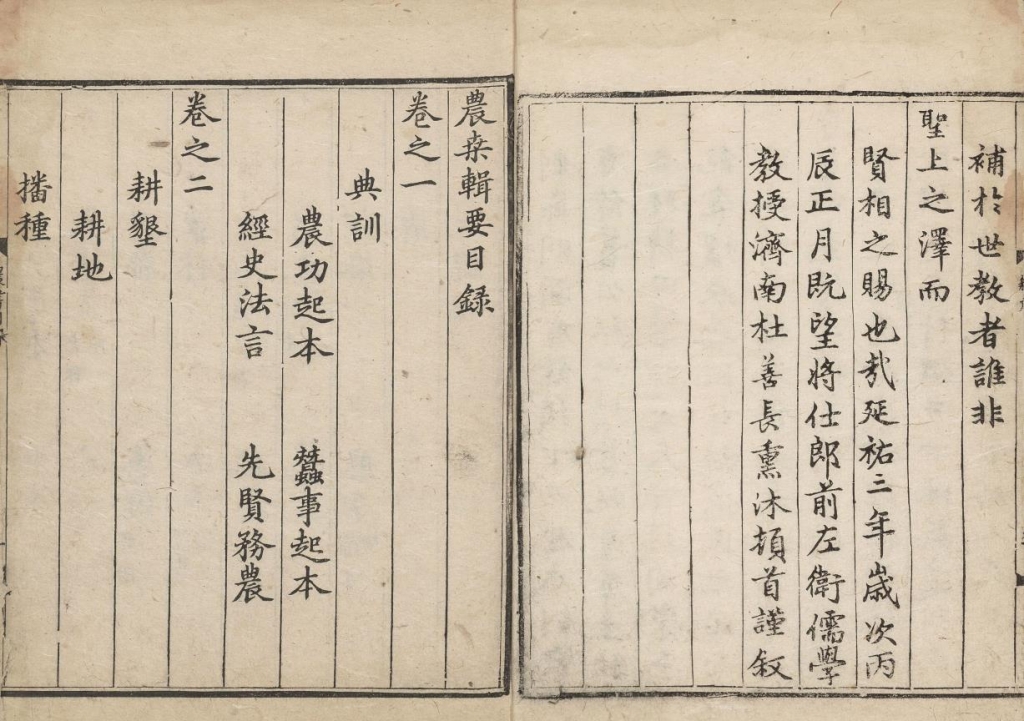 補於世教者誰非
聖上之澤而
賢相之賜也哉延祐三年歲次丙
辰正月既望將仕郎前左衛儒學
教授濟南杜善長熏沐頓首謹叙
農桒輯要目録
卷之一
典訓
農功起本　蠶事起本
經史法言　先賢務農
卷之二
耕墾
耕地
播種